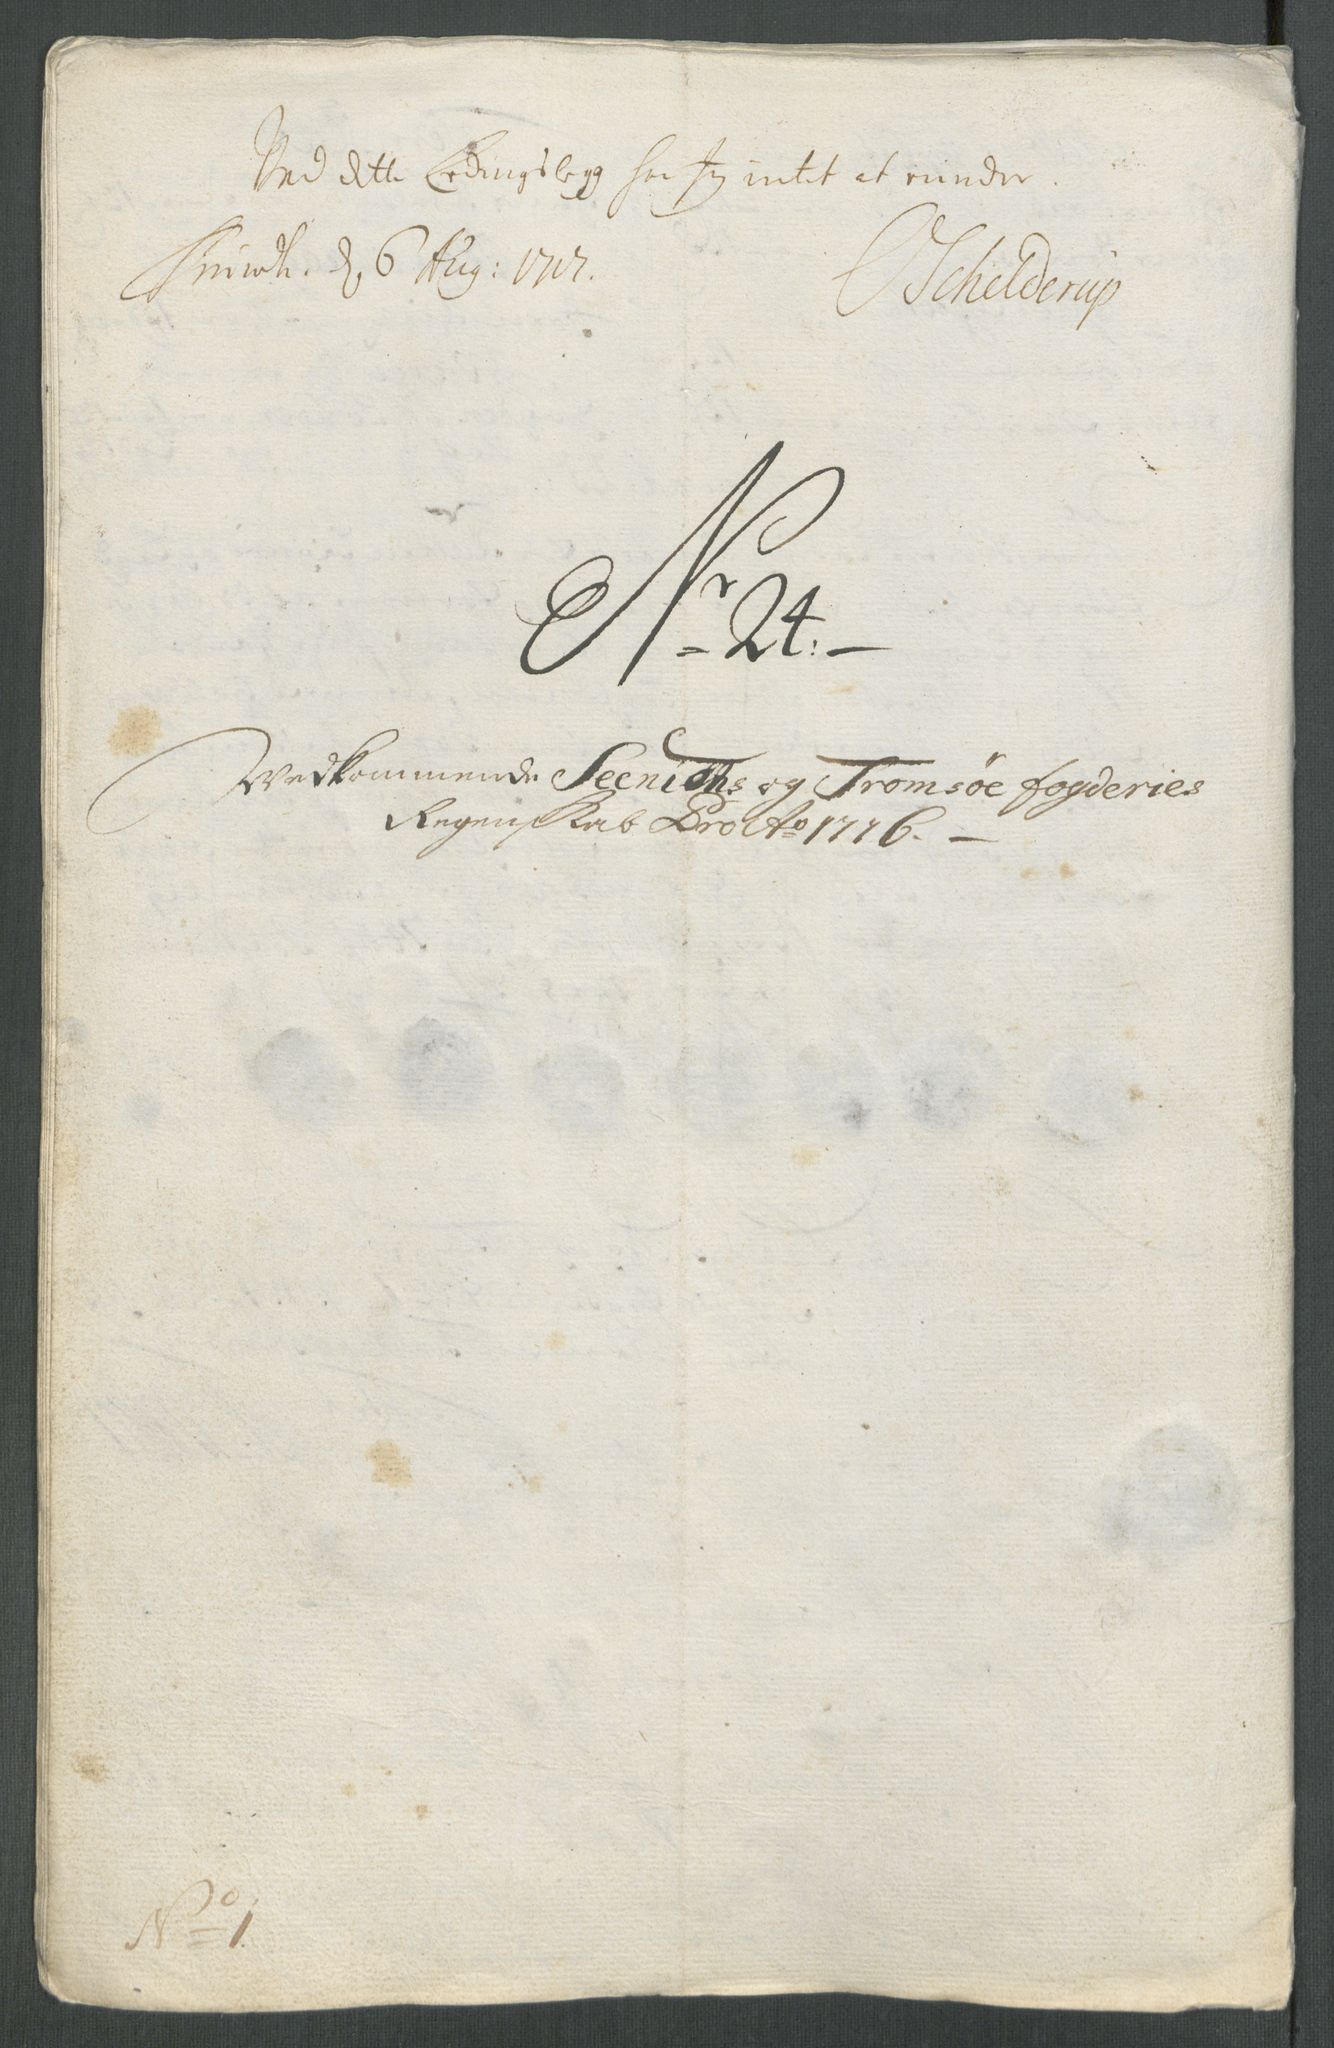 Ved dette Ledingslegg har Jeg intet at minder.
d 6 Aug: 1717. Schelderup
Nr 24:
Vedkommende Seeniens og Tromsøe fogderies
Regenskab Pro Ao 1716.
No 1.